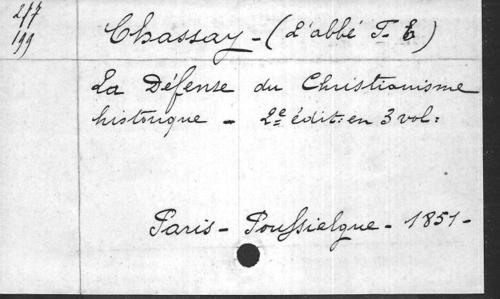 277
199
Chassay - (L'abbé F. E)
La Défense du Christianisme
historique - 2e édit: en 3 vol:
Paris - Poussielgue - 1851 -